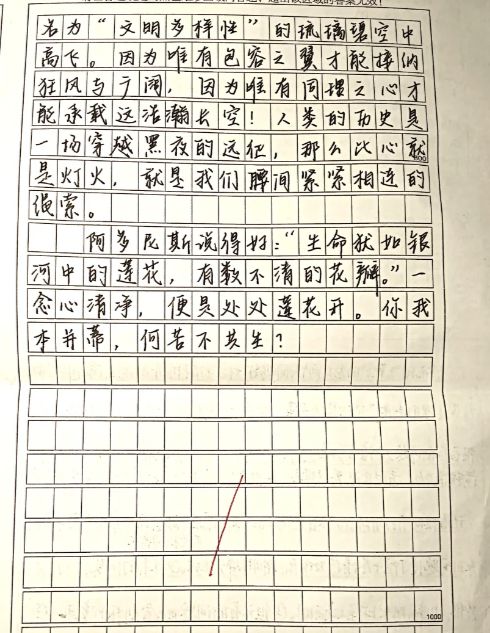 名为“文明多样性”的琉璃碧空中
高飞。因为唯有包容之翼才能接纳
狂风与广阔，因为唯有同理之心才
能承载这浩瀚长空！人类的历史是
一场穿越黑夜的远征，那么此心就
800
是灯火，就是我们腰间紧紧相连的
绳索。
阿多尼斯说得好：“生命犹如银
河中的莲花，有数不清的花瓣。”一
念心清净，便是处处莲花开。你我
本并蒂，何苦不共生？
1000